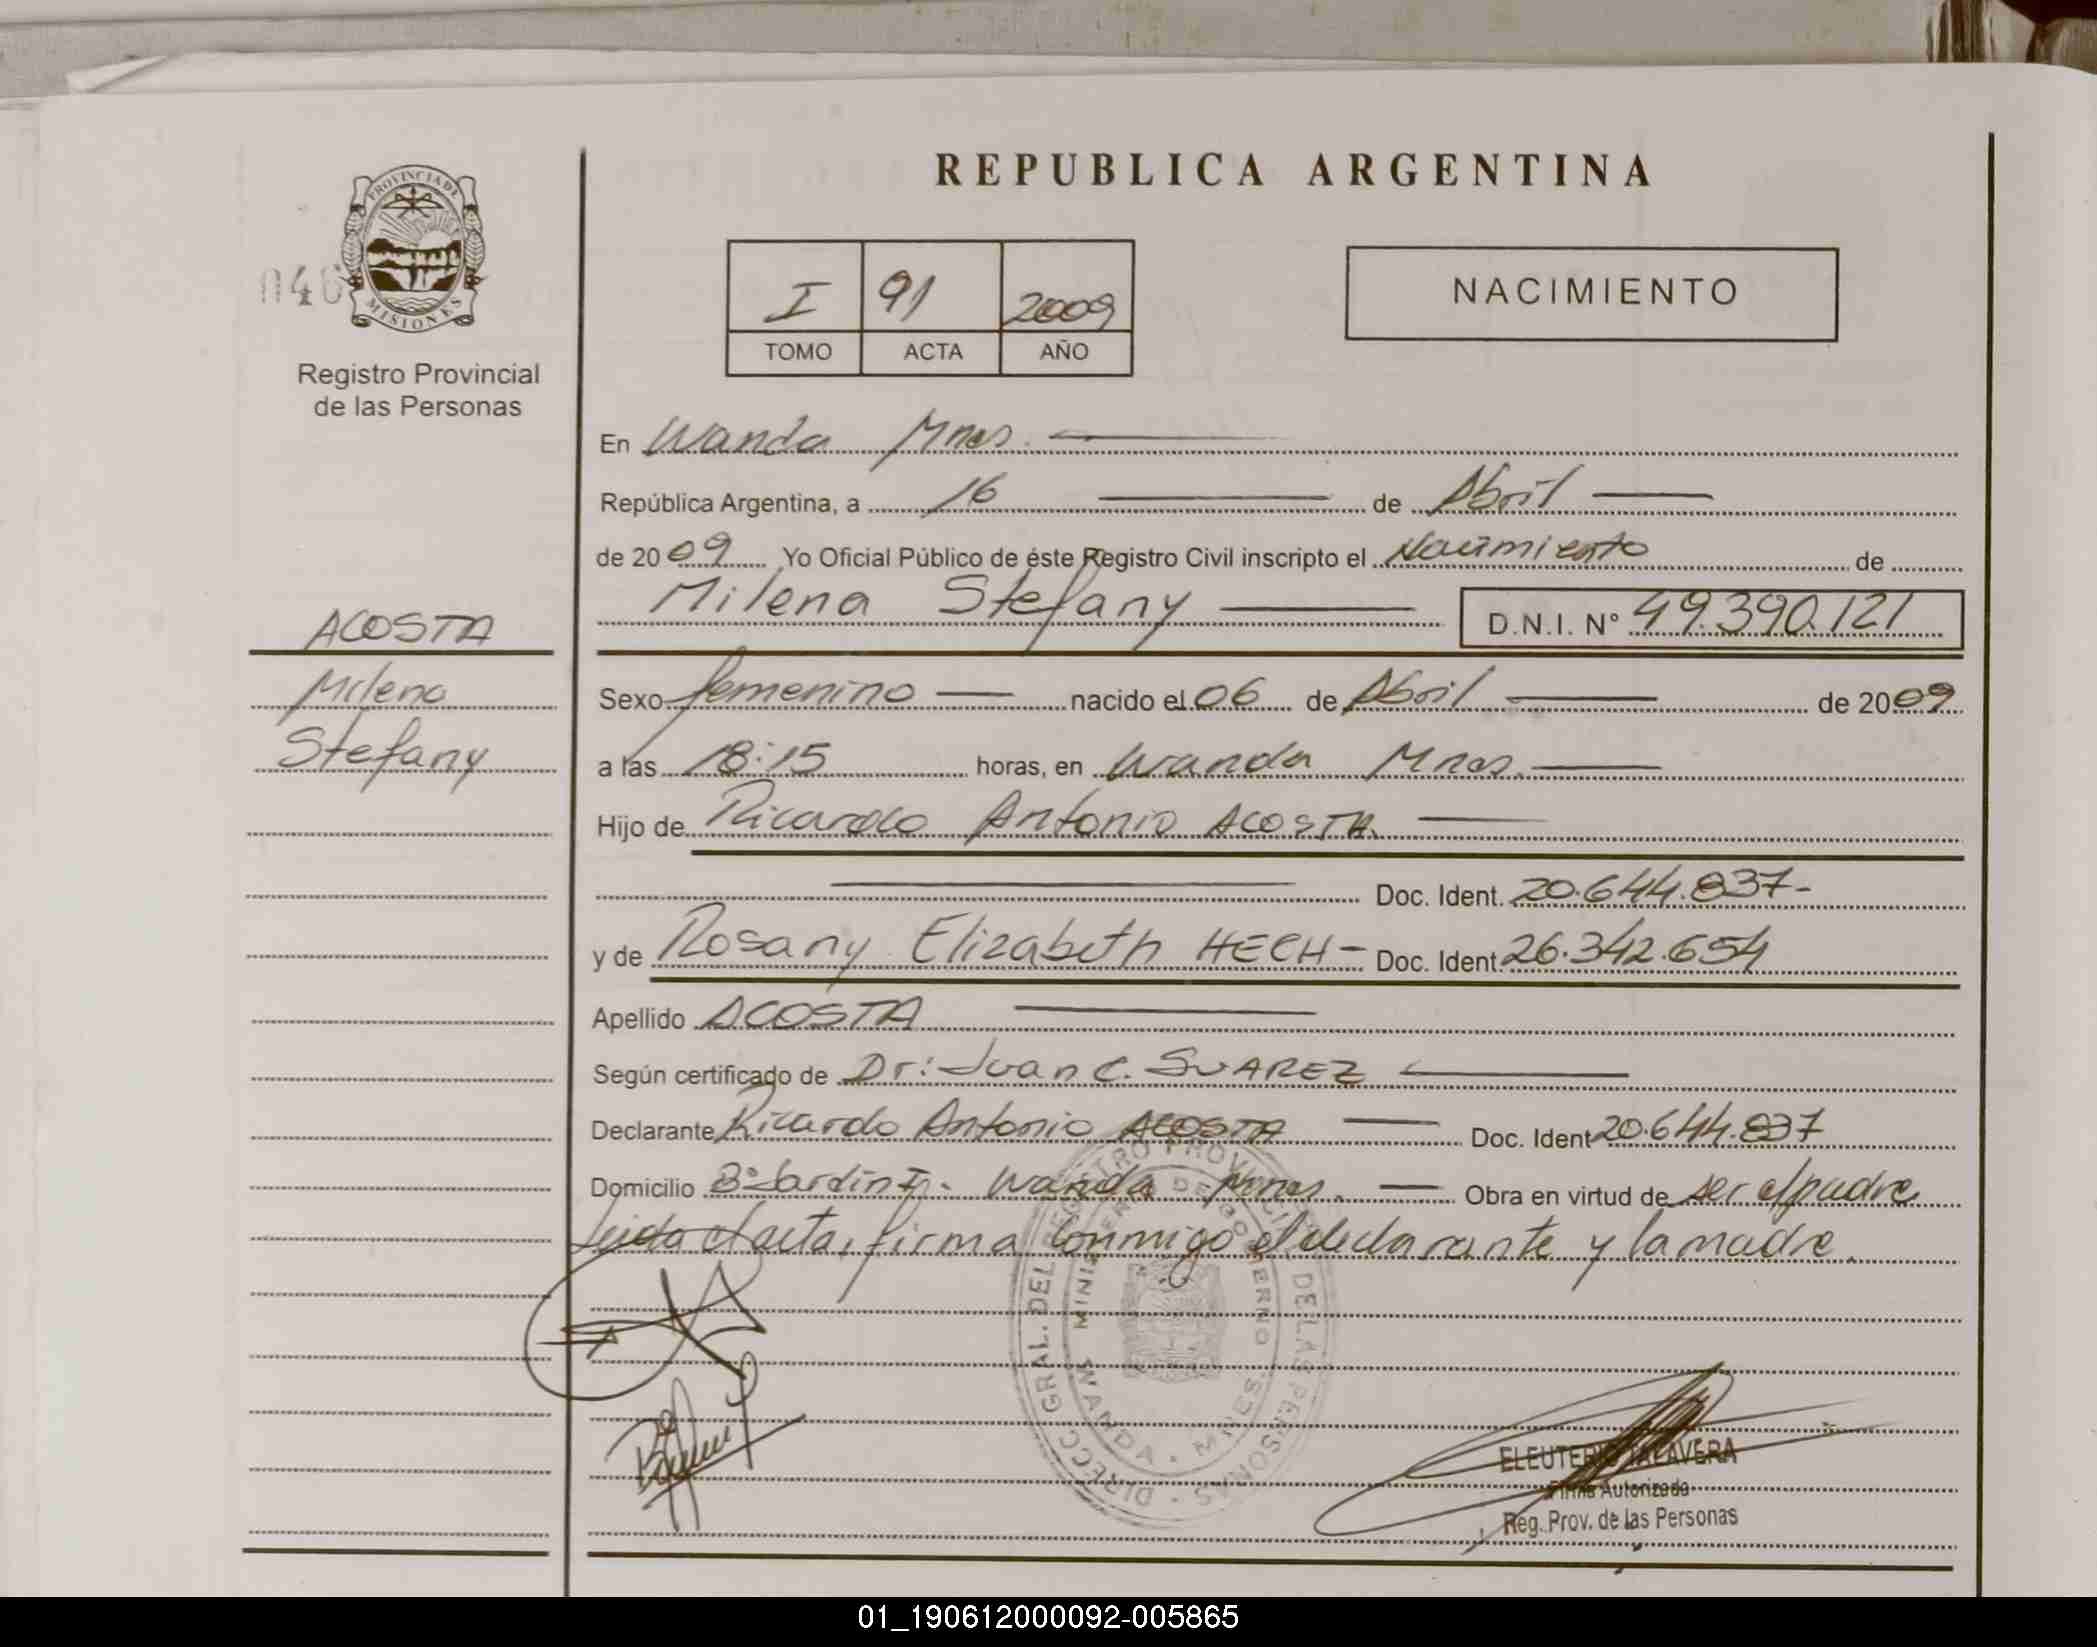 REPUBLICA ARGENTINA
PROVINCIA DE
MISIONES
046
Registro Provincial
de las Personas
I 91 2009
TOMO ACTA AÑO
NACIMIENTO
ACOSTA
Milena
Stefany
En Wanda Mnes.
República Argentina, a 16 de Abril
de 2009 Yo Oficial Público de éste Registro Civil inscripto el Nacimiento de
Milena Stefany D.N.I. N° 49.390.121
Sexo femenino nacido el 06 de Abril de 2009
a las 18:15 horas, en Wanda Mnes.
Hijo de Ricardo Antonio ACOSTA.
Doc. Ident. 20.644.837-
y de Rosany Elizabeth HECH - Doc. Ident. 26.342.654
Apellido ACOSTA
Según certificado de Dr: Juan C. SUAREZ
Declarante Ricardo Antonio ACOSTA Doc. Ident 20.644.837
Domicilio B° Jardin I. Wanda Mnes. Obra en virtud de ser el padre
Leida el acta, firma conmigo el declarante y la madre.
DIRECC. GRAL. DEL REGISTRO PROVINCIAL DE LAS PERSONAS
MINISTERIO DE GOBIERNO
WANDA - MNES.
ELEUTERIO TALAVERA
Firma Autorizada
Reg. Prov. de las Personas
01_190612000092-005865